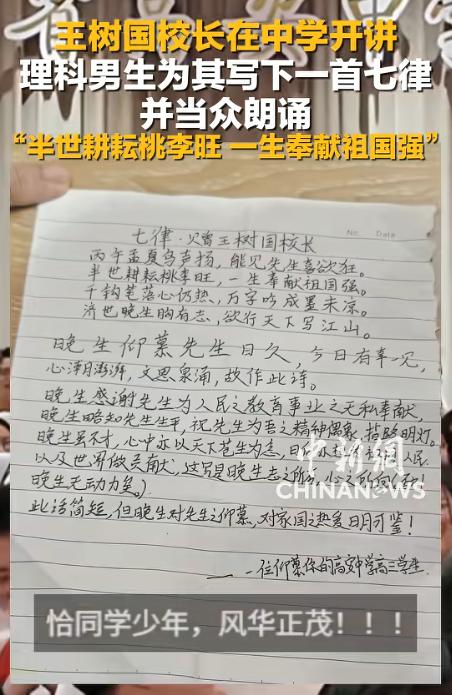 王树国校长在中学开讲
理科男生为其写下一首七律
并当众朗诵
“半世耕耘桃李旺 一生奉献祖国强”
No.
Date
七律·赠王树国校长
丙午孟夏鸟声扬，能见先生喜欲狂。
半世耕耘桃李旺，一生奉献祖国强。
千钧笔落心仍热，万字吟成墨未凉。
济世晚生胸有志，欲行天下写江山。
晚生仰慕先生日久，今日有幸一见，
心潮澎湃，文思泉涌，故作此诗。
晚生感谢先生为人民之教育事业之无私奉献，
晚生略知先生生平，视先生为吾之精神偶象，指路明灯。
晚生虽不才，心中亦以天下苍生为念，日
以及世界做贡献，这写是晚生志之所
晚生无动力矣。）
此话简短，但晚生对先生之仰慕，对家国之热爱日月可鉴！
——一位仰慕您的高中学高三学生
中新网
CHINANEWS
恰同学少年，风华正茂！！！